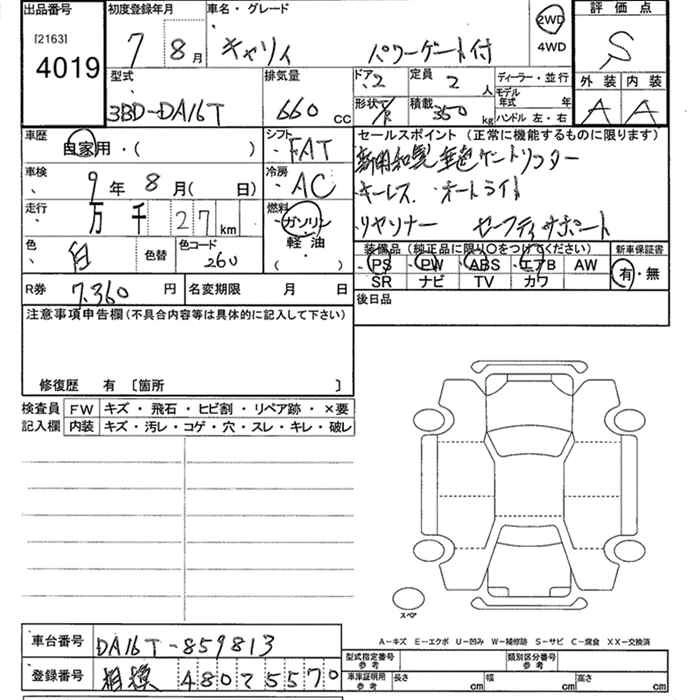 出品番号 初度登録年月 車名・グレード 評価点
[2163] 4019 7 8月 キャリィ パワーゲート付 2WD 4WD S
型式 排気量 ドア 2 定員 2人 ディーラー・並行 外装 内装
3BD-DA16T 660 CC 形状 積載 350 kg モデル年式 年 A A
ハンドル 左・右
車歴 自家用・( ) シフト FAT セールスポイント (正常に機能するものに限ります)
車検 9年 8月( 日) 冷房 AC キーレス オートライト
走行 万 千 27 km 燃料 ガソリン 軽油 ( ) セーフティサポート
色 白 色替 色コード 260 装備品 (純正品に限り○をつけてください) 新車保証書
PS PW ABS エアB AW 有・無
SR ナビ TV カワ
R券 7,360 円 名変期限 月 日 後日品
注意事項申告欄(不具合内容等は具体的に記入して下さい)
修復歴 有 〔箇所 〕
検査員 FW キズ・飛石・ヒビ割・リペア跡・×要
記入欄 内装 キズ・汚レ・コゲ・穴・スレ・キレ・破レ
スペア
車台番号 DA16T-859813
A-キズ E-エクボ U-凹み W-補修跡 S-サビ C-腐食 XX-交換済
型式指定番号 参考 類別区分番号 参考
登録番号 相模 480 2 5570
車庫証明用 参考 長さ cm 幅 cm 高さ cm